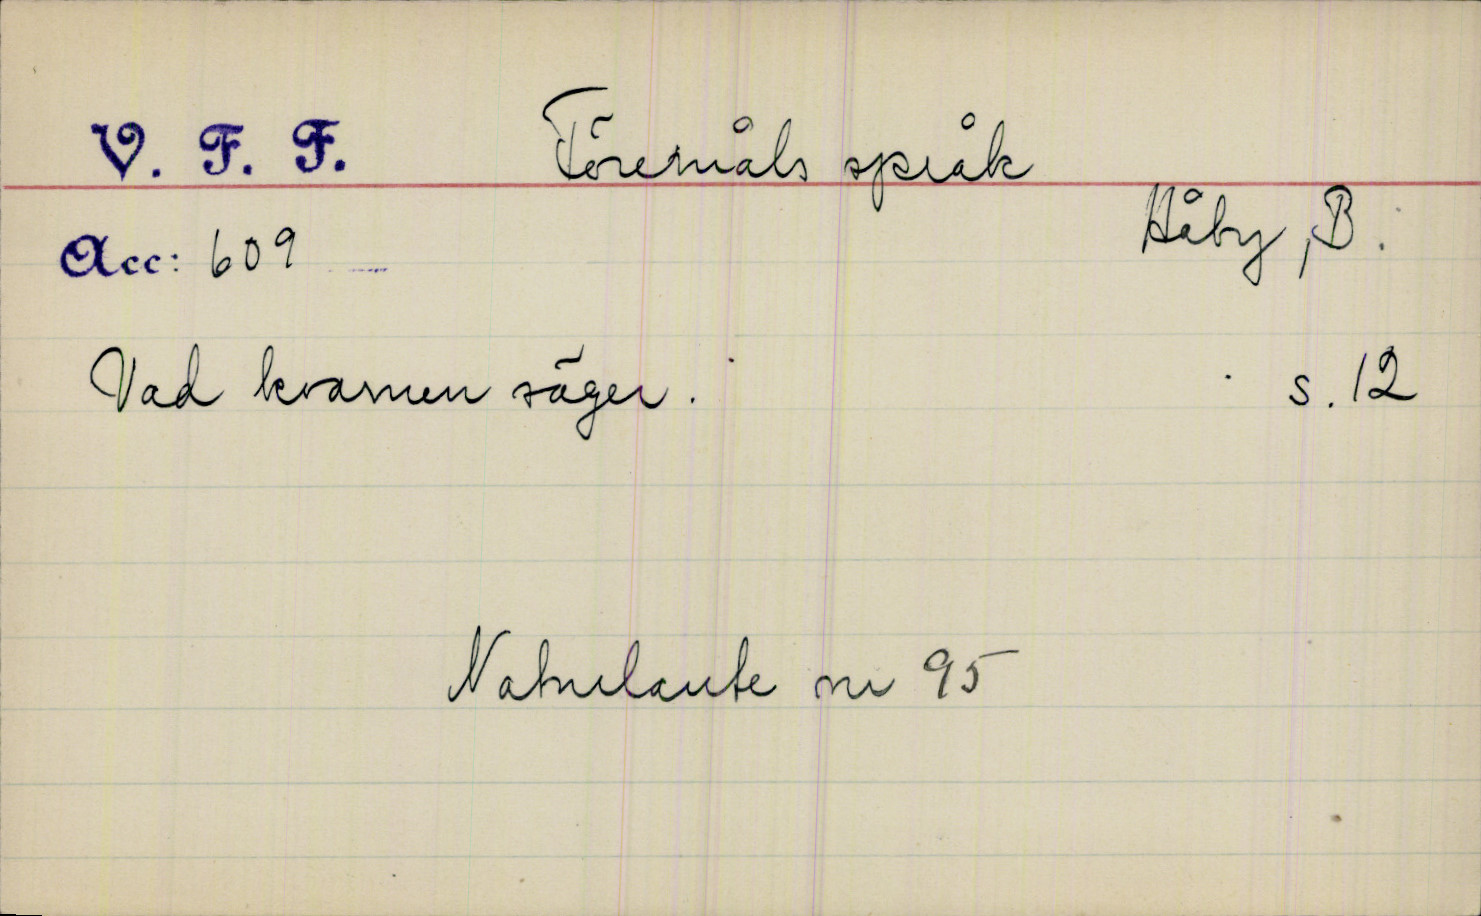 V. F. F. Föremåls språk
Håby, B.
Acc: 609
Vad kvarnen säger. s. 12
Naturlaute nr 95